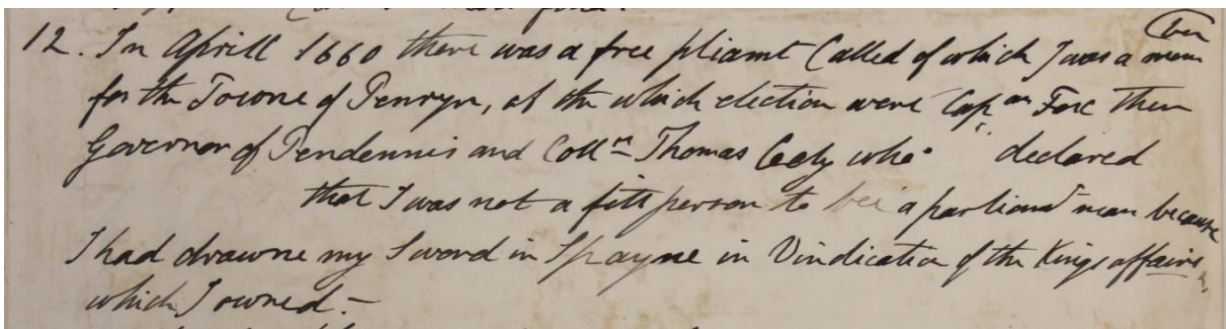 12. In Aprill 1660 there was a free pliamt Called of which I was a mem
ber
for the Towne of Penryn, at the which election were Capᵃⁿ Fox then
Governor of Pendennis and Collⁿ Thomas Ceely who declared
that I was not a fitt person to bee a parliamᵗ man because
I had drawne my Sword in Spayne in Vindication of the Kings affairs
which I owned. –